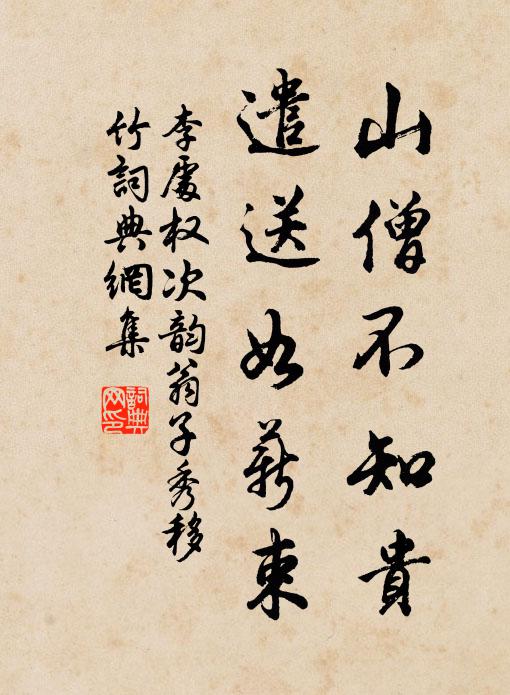 山僧不知貴
遣送如薪束
李處权次韵翁子秀移
竹詞典網集
詞典网印